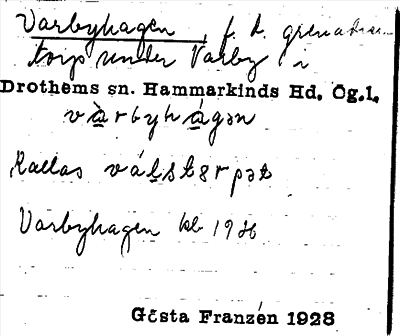 Varbyhagen, f. d. grenadier-
torp under Varby i
Drothems sn. Hammarkinds Hd. Ög.l.
vàrbyhágən
Kallas válstərpət
Varbyhagen kb 1926
Gösta Franzén 1928